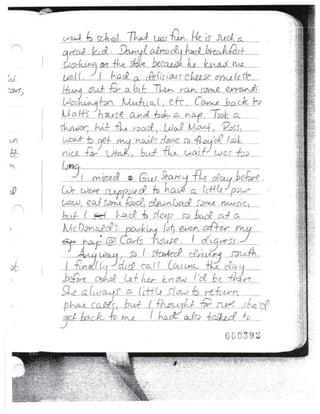 went to school. That was fun. He is such a
great kid. Darryl already had breakfast
working on the stove because he knows me
well. I had a delicious cheese omelette.
Hung out for a bit. Then ran some errands.
Washington Mutual, etc. Came back to
Matt's house and took a nap. Took a
shower, hit the road, Wal Mart, Ross,
want to get my nails done so they'd look
nice for Utah, but the wait was too
long.
I missed Gus Searcy the day before.
We were supposed to have a little pow
wow, eat some food, download some music,
but I had to sleep so bad at a
McDonald's parking lot, even after my
nap @ Carl's house. I digress.
Anyway, so I started driving south.
I finally did call Laura the day
before and let her know I'd be there.
She always a little slow to return
phone calls, but I thought for sure she'd
get back to me. I had also talked to
000392